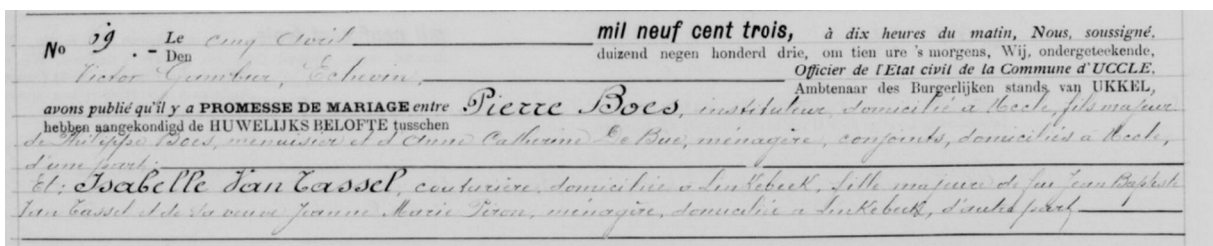 No 19. - Le cinq Avril mil neuf cent trois, à dix heures du matin, Nous, soussigné,
Den duizend negen honderd drie, om tien ure 's morgens, Wij, ondergeteekende,
Victor Gambier, Echevin, Officier de l'Etat civil de la Commune d'UCCLE,
Ambtenaar des Burgerlijken stands van UKKEL,
avons publié qu'il y a PROMESSE DE MARIAGE entre Pierre Boes, instituteur, domicilié à Uccle, fils majeur
hebben aangekondigd de HUWELIJKS BELOFTE tusschen
de Philippe Boes, menuisier et d'Anne Catherine De Bue, ménagère, conjoints, domiciliés à Uccle,
d'une part;
Et: Isabelle Van Tassel, couturière, domiciliée à Linkebeek, fille majeure de feu Jean Baptiste
Van Tassel et de sa veuve Jeanne Marie Piron, ménagère, domiciliée à Linkebeek, d'autre part